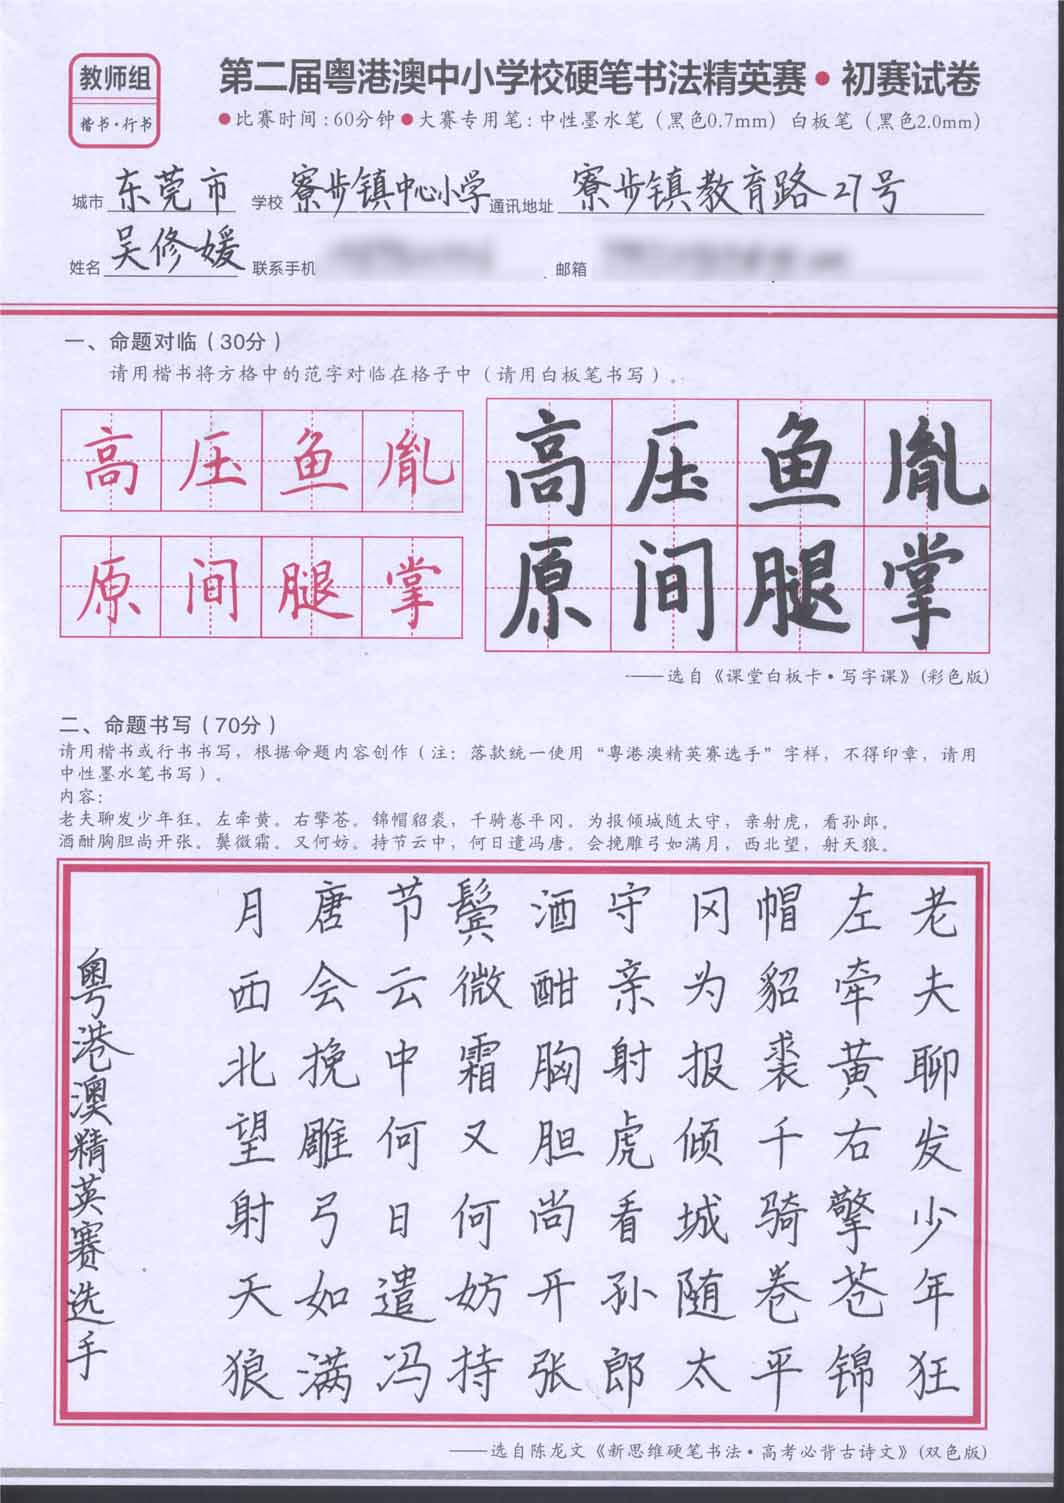 教师组
楷书·行书
第二届粤港澳中小学校硬笔书法精英赛•初赛试卷
●比赛时间:60分钟●大赛专用笔:中性墨水笔（黑色0.7mm）白板笔（黑色2.0mm）
城市 东莞市 学校 寮步镇中心小学 通讯地址 寮步镇教育路27号
姓名 吴修媛 联系手机 邮箱
一、命题对临（30分）
请用楷书将方格中的范字对临在格子中（请用白板笔书写）。
高压鱼胤
原间腿掌
高压鱼胤
原间腿掌
——选自《课堂白板卡·写字课》(彩色版)
二、命题书写（70分）
请用楷书或行书书写，根据命题内容创作（注：落款统一使用“粤港澳精英赛选手”字样，不得印章，请用
中性墨水笔书写）。
内容：
老夫聊发少年狂。左牵黄。右擎苍。锦帽貂裘，千骑卷平冈。为报倾城随太守，亲射虎，看孙郎。
酒酣胸胆尚开张。鬓微霜。又何妨。持节云中，何日遣冯唐。会挽雕弓如满月，西北望，射天狼。
老夫聊发少年狂
左牵黄右擎苍锦
帽貂裘千骑卷平
冈为报倾城随太
守亲射虎看孙郎
酒酣胸胆尚开张
鬓微霜又何妨持
节云中何日遣冯
唐会挽雕弓如满
月西北望射天狼
粤港澳精英赛选手
——选自陈龙文《新思维硬笔书法·高考必背古诗文》(双色版)